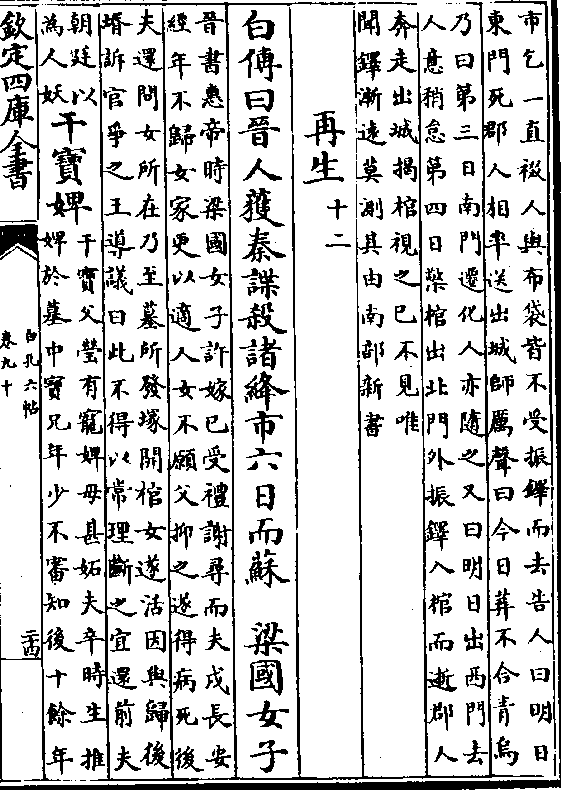 市乞一直裰人與布袋皆不受振鐸而去告人曰明日
東門死郡人相率送出城師厲聲曰今日葬不合青烏
乃曰第三日南門遷化人亦隨之又曰明日出西門去
人意稍怠第四日檠棺出北門外振鐸入棺而逝郡人
奔走出城揭棺視之已不見唯
聞鐸漸遠莫測其由南部新書
再生十二
白傳曰晉人獲秦諜殺諸絳市六日而蘇 梁國女子
晉書惠帝時梁國女子許嫁已受禮謝尋而夫戍長安
經年不歸女家更以適人女不願父抑之遂得病死後
夫還問女所在乃至墓所發塚開棺女遂活因與歸後
壻訴官爭之王導議曰此不得以常理斷之宜還前夫
朝廷以
為人妖
干寶婢
干寶父瑩有寵婢母甚妬夫卒時生推
婢於墓中寶兄年少不審知後十餘年
欽定四庫全書
白孔六帖
卷九十
二十四